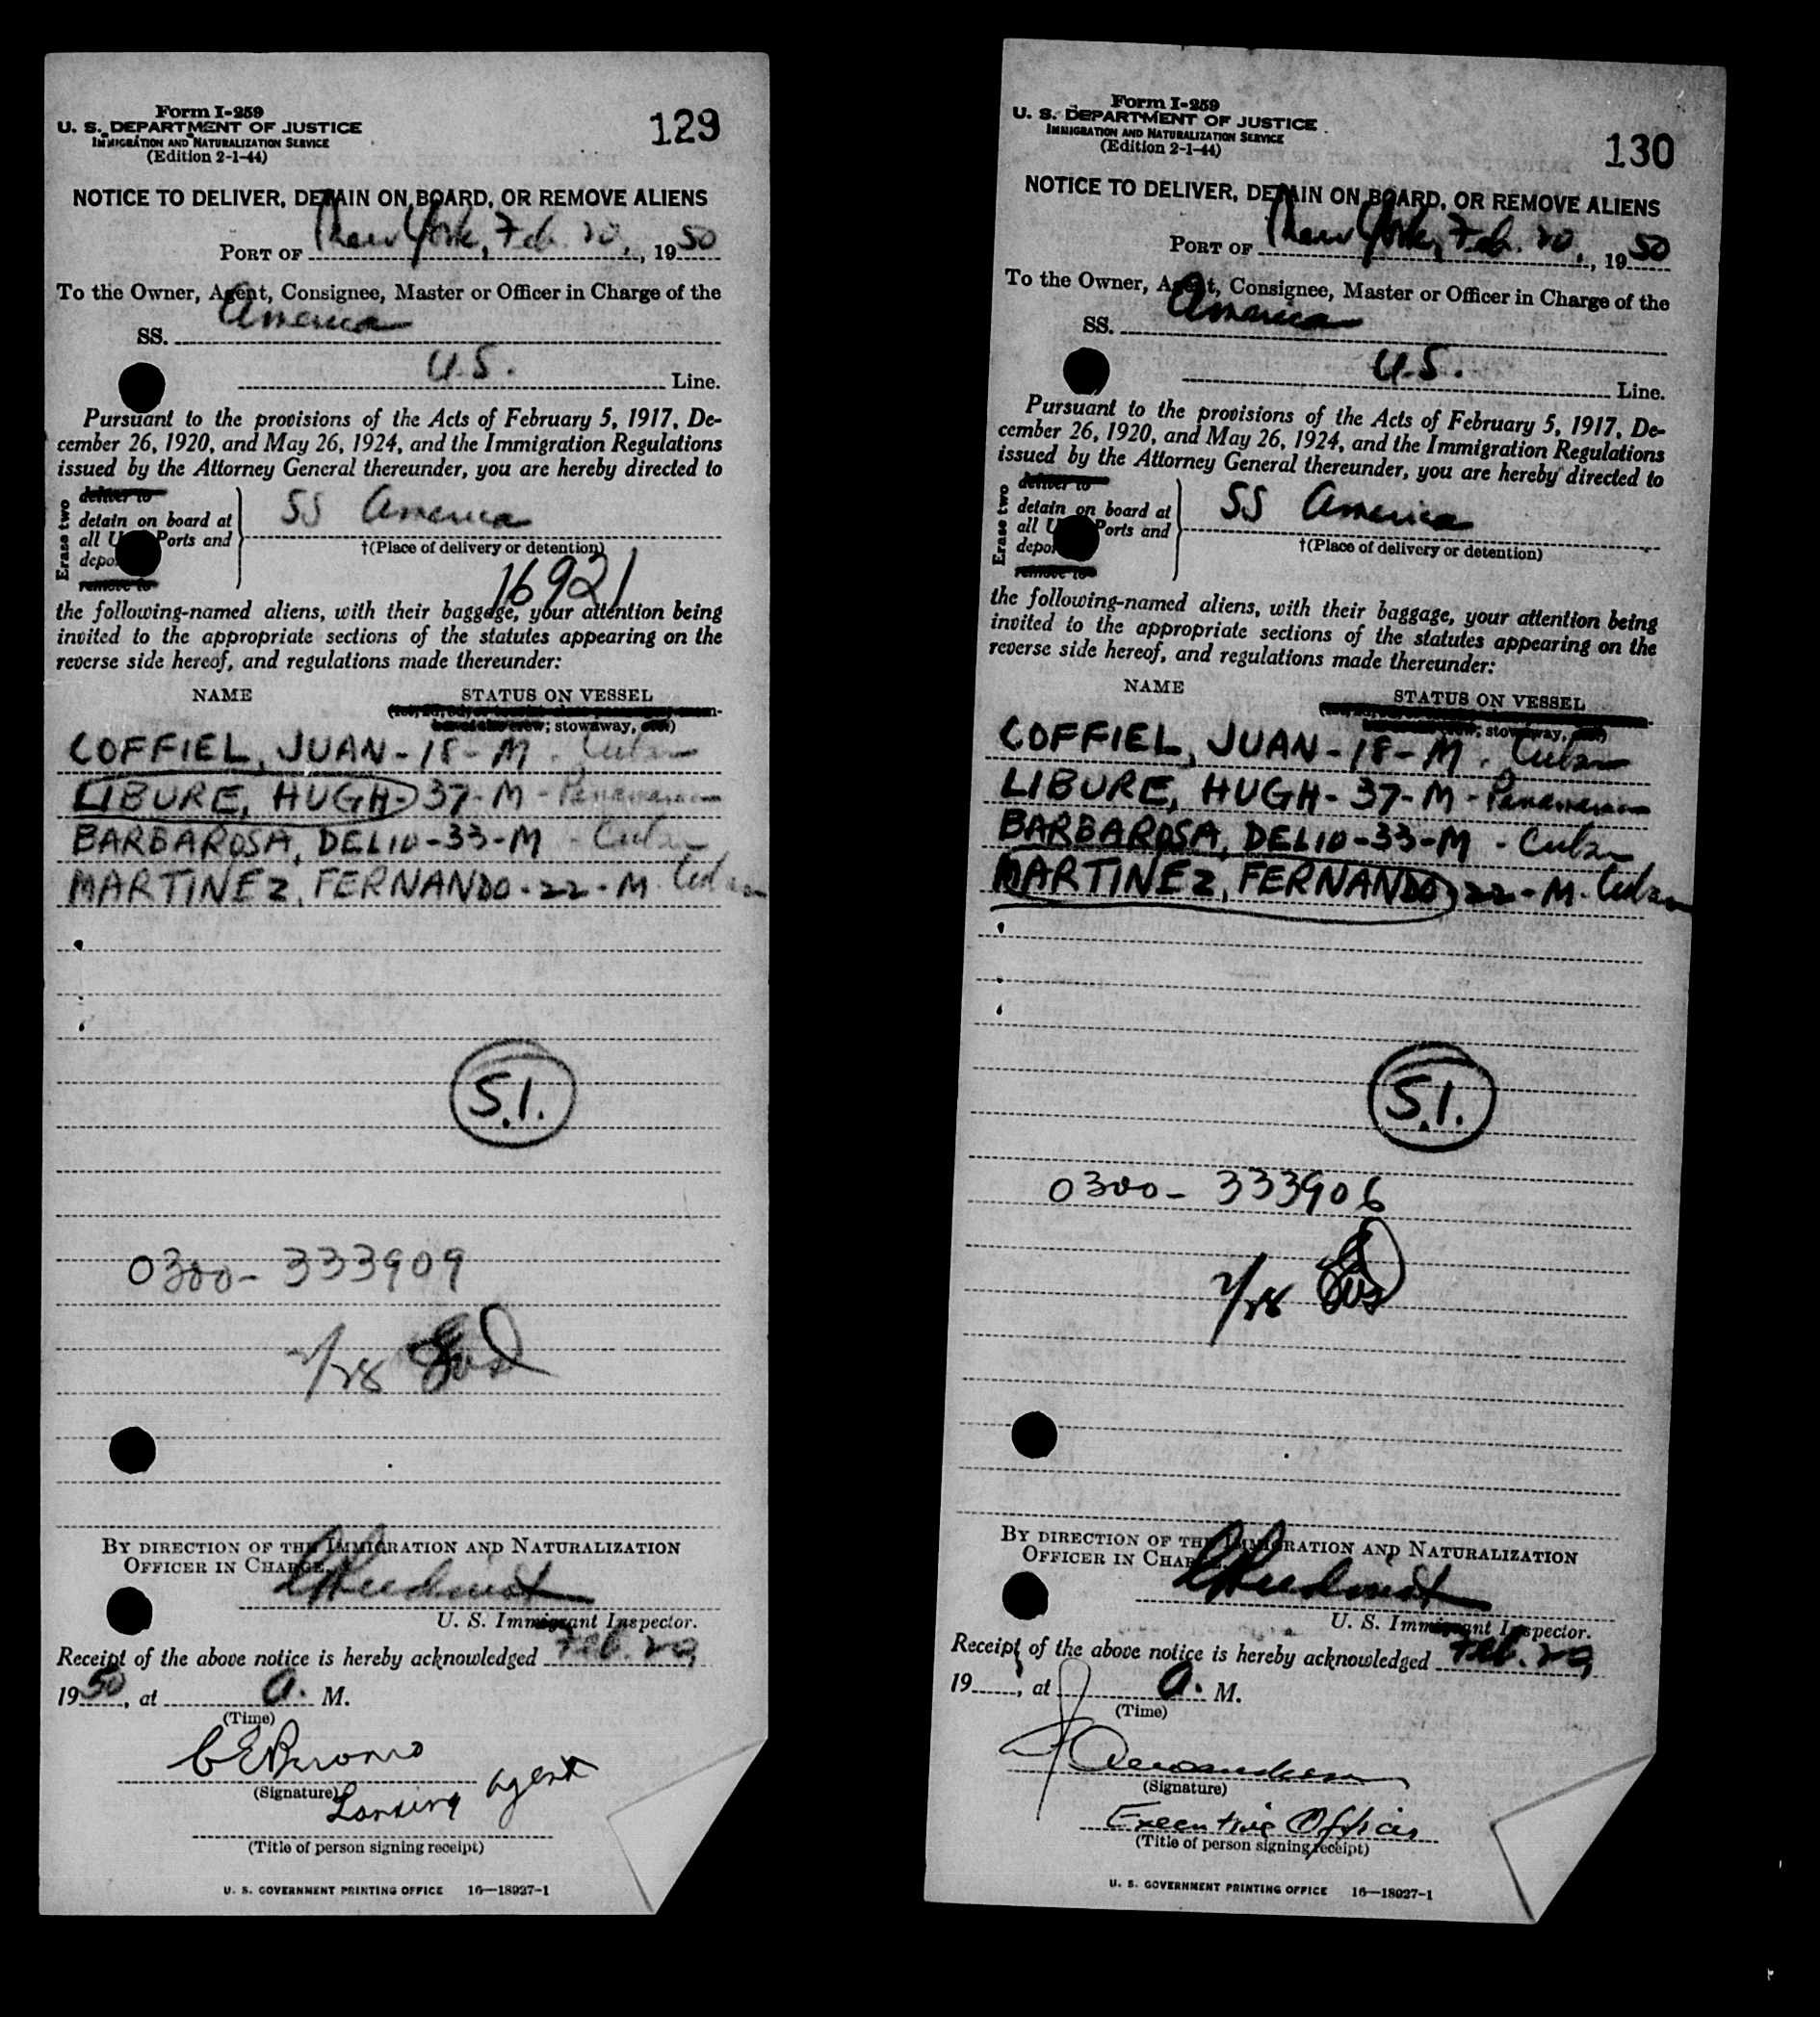 Form I-259
U. S. DEPARTMENT OF JUSTICE
IMMIGRATION AND NATURALIZATION SERVICE
(Edition 2-1-44)
129
NOTICE TO DELIVER, DETAIN ON BOARD, OR REMOVE ALIENS
PORT OF New York, Feb. 20, 1950
To the Owner, Agent, Consignee, Master or Officer in Charge of the
SS. America
U.S. Line.
Pursuant to the provisions of the Acts of February 5, 1917, De-
cember 26, 1920, and May 26, 1924, and the Immigration Regulations
issued by the Attorney General thereunder, you are hereby directed to
Erase two
deliver to
detain on board at
all U Ports and
depo
remove to
SS America
†(Place of delivery or detention)
16921
the following-named aliens, with their baggage, your attention being
invited to the appropriate sections of the statutes appearing on the
reverse side hereof, and regulations made thereunder:
NAME STATUS ON VESSEL
; stowaway,
COFFIEL, JUAN - 18 - M - Cuban
LIBURE, HUGH - 37 - M - Panamanian
BARBAROSA, DELIO - 33 - M - Cuban
MARTINEZ, FERNANDO - 22 - M. Cuban
S.I.
0300 - 333909
2/28
BY DIRECTION OF THE IMMIGRATION AND NATURALIZATION
OFFICER IN CHARGE.
U. S. Immigrant Inspector.
Receipt of the above notice is hereby acknowledged Feb. 20,
1950, at A. M.
(Time)
(Signature)
Landing Agent
(Title of person signing receipt)
U. S. GOVERNMENT PRINTING OFFICE 16—18927-1
Form I-259
U. S. DEPARTMENT OF JUSTICE
IMMIGRATION AND NATURALIZATION SERVICE
(Edition 2-1-44)
130
NOTICE TO DELIVER, DETAIN ON BOARD, OR REMOVE ALIENS
PORT OF New York, Feb. 20, 1950
To the Owner, Agent, Consignee, Master or Officer in Charge of the
SS. America
U.S. Line.
Pursuant to the provisions of the Acts of February 5, 1917, De-
cember 26, 1920, and May 26, 1924, and the Immigration Regulations
issued by the Attorney General thereunder, you are hereby directed to
Erase two
deliver to
detain on board at
all U Ports and
depo
remove to
SS America
†(Place of delivery or detention)
the following-named aliens, with their baggage, your attention being
invited to the appropriate sections of the statutes appearing on the
reverse side hereof, and regulations made thereunder:
NAME STATUS ON VESSEL
; stowaway,
COFFIEL, JUAN - 18 - M. Cuban
LIBURE, HUGH - 37 - M - Panamanian
BARBAROSA, DELIO - 33 - M - Cuban
MARTINEZ, FERNANDO 22 - M. Cuban
S.I.
0300 - 333906
2/28
BY DIRECTION OF THE IMMIGRATION AND NATURALIZATION
OFFICER IN CHARGE.
U. S. Immigrant Inspector.
Receipt of the above notice is hereby acknowledged Feb. 20,
19 , at A. M.
(Time)
(Signature)
Executive Officer
(Title of person signing receipt)
U. S. GOVERNMENT PRINTING OFFICE 16—18927-1